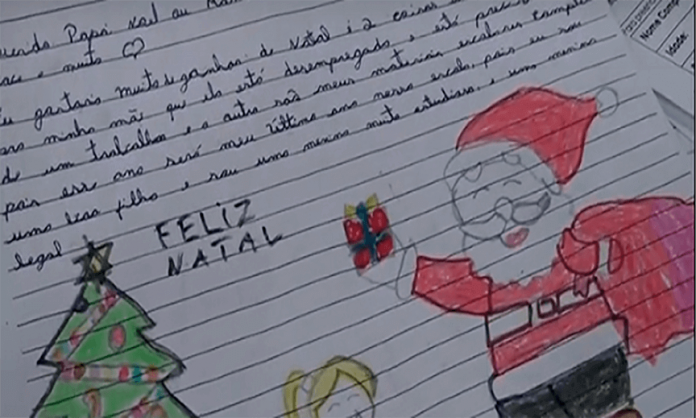 Papai Noel ou
muito
gostaria muito de ganhar de Natal é 2 coisas
minha mãe que ela está desempregada e está
de um trabalho e o outro são meus materiais escolares completo
pois esse ano será meu último ano nessa escola, pois eu sou
uma boa filho e sou uma menina muito estudiosa, e uma menina
legal
FELIZ
NATAL
Nome Comp
Idade: